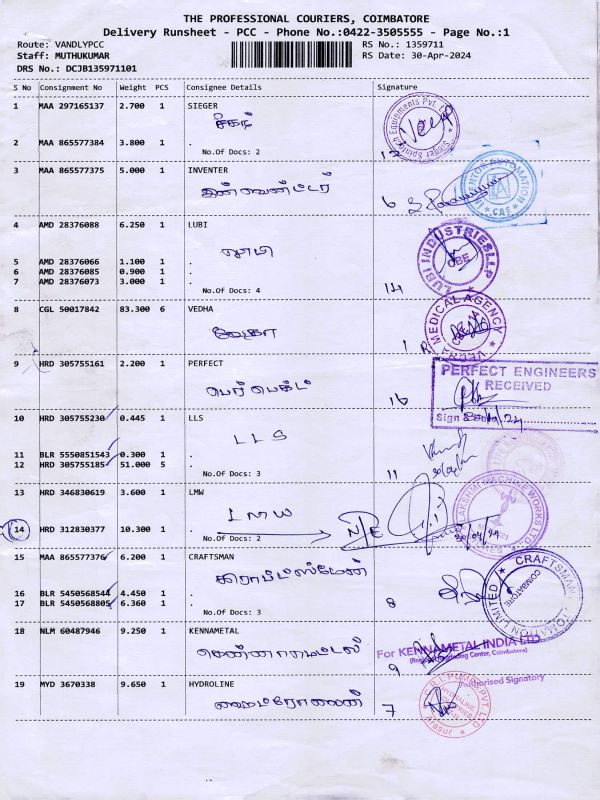 THE PROFESSIONAL COURIERS, COIMBATORE
Delivery Runsheet - PCC - Phone No.:0422-3505555 - Page No.:1
Route: VANDLYPCC
Staff: MUTHUKUMAR
DRS No.: DCJB135971101
RS No.: 1359711
RS Date: 30-Apr-2024
S No Consignment No Weight PCS Consignee Details Signature
1 MAA 297165137 2.700 1 SIEGER
சீகர்
2 MAA 865577384 3.800 1 .
No.Of Docs: 2
3 MAA 865577375 5.000 1 INVENTER
இன்வென்டர்
6
INVENTOR AUTOMATION
CBE
4 AMD 28376088 6.250 1 LUBI
லூபி
5 AMD 28376066 1.100 1 .
6 AMD 28376085 0.900 1 .
7 AMD 28376073 3.000 1 .
No.Of Docs: 4
14
LUBI INDUSTRIES LLP
CBE
8 CGL 50017842 83.300 6 VEDHA
வேதா
1
MEDICAL AGENCY
9 HRD 305755161 2.200 1 PERFECT
பெர்பெக்ட்
16
PERFECT ENGINEERS
RECEIVED
Sign
10 HRD 305755230 0.445 1 LLS
LLS
11 BLR 5550851543 0.300 1 .
12 HRD 305755185 51.000 5 .
No.Of Docs: 3
11
13 HRD 346830619 3.600 1 LMW
LMW
14 HRD 312830377 10.300 1 .
No.Of Docs: 2
N/E
30/04/24
15 MAA 865577376 6.200 1 CRAFTSMAN
கிராப்ட்ஸ்மேன்
16 BLR 5450568544 4.450 1 .
17 BLR 5450568805 6.360 1 .
No.Of Docs: 3
8
CRAFTSMAN AUTOMATION LIMITED
COIMBATORE
18 NLM 60487946 9.250 1 KENNAMETAL
கென்னாமெட்டல்
9
For KENNAMETAL INDIA LTD
Authorised Signatory
19 MYD 3670338 9.650 1 HYDROLINE
ஹைட்ரோலைன்
7